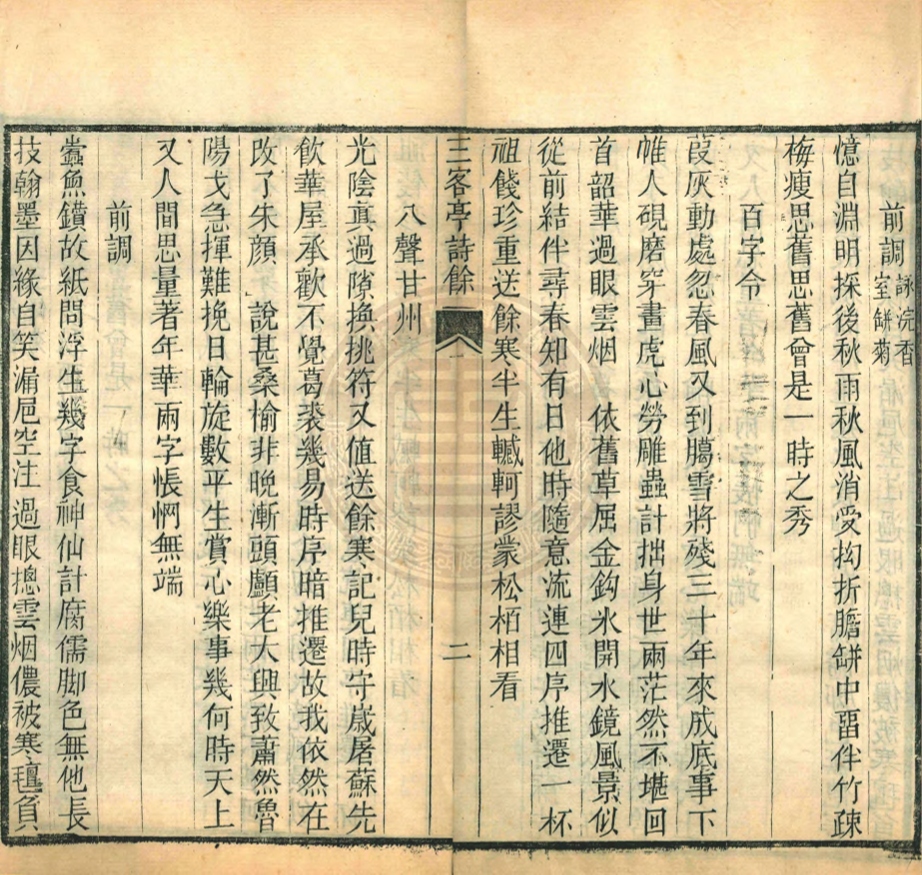 前調 詠浣香室缾菊
憶自淵明採後秋雨秋風消受抝折膽缾中畱伴竹疎
梅瘦思舊思舊曾是一時之秀
百字令
葭灰動處忽春風又到臈雪將殘三十年來成底事下
帷人硯磨穿畫虎心勞雕蟲計拙身世兩茫然不堪回
首韶華過眼雲烟　依舊草屈金鈎氷開水鏡風景似
從前結伴尋春知有日他時隨意流連四序推遷一杯
祖餞珍重送餘寒半生轗軻謬蒙松栢相看
三客亭詩餘 二
八聲甘州
光陰眞過隙換挑符又値送餘寒記兒時守嵗屠蘇先
飮華屋承歡不覺葛裘幾易時序暗推遷故我依然在
改了朱顔　說甚桑愉非晚漸頭顱老大興致蕭然魯
陽戈急揮難挽日輪旋數平生賞心樂事幾何時天上
又人間思量著年華兩字悵惘無端
前調
蠧魚鑽故紙問浮生幾字食神仙計腐儒脚色無他長
技翰墨因緣自笑漏巵空注過眼摠雲烟儂被寒氊負